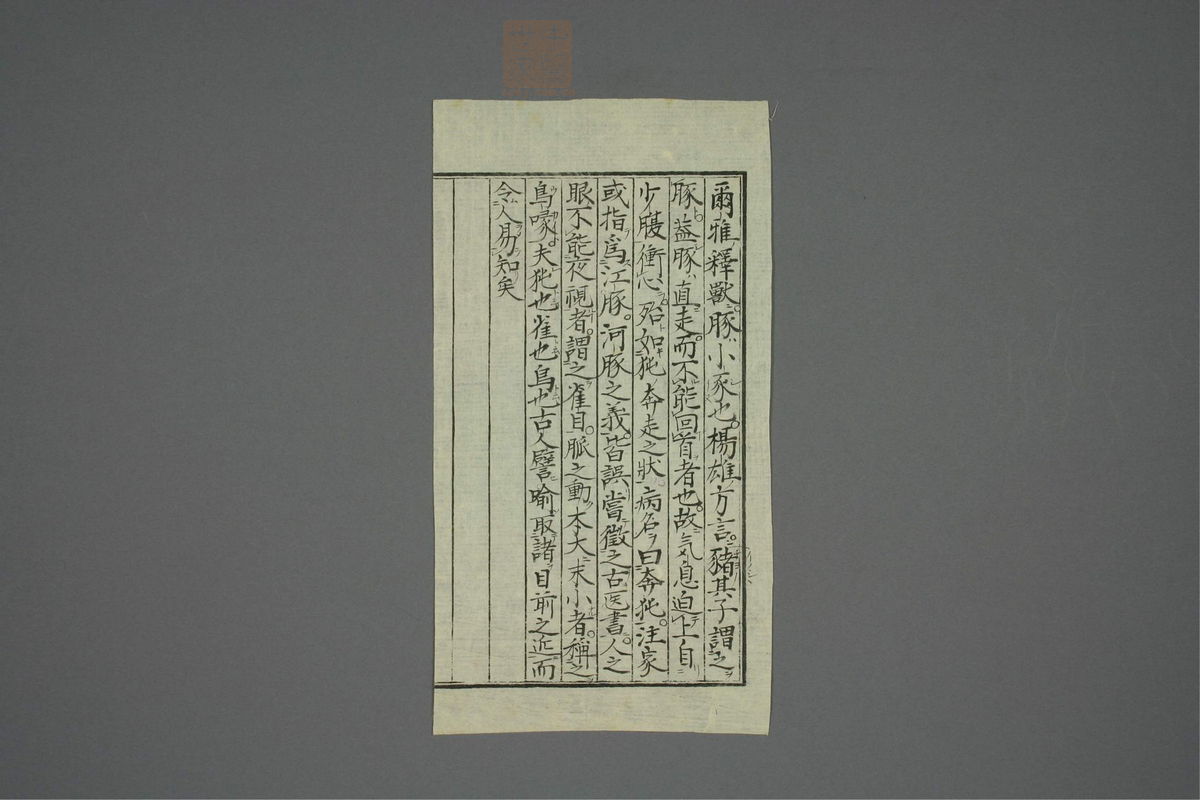 爾雅釋獸豚小豕也楊雄方言豬其子謂之
豚蓋豚直走而不能回首者也故気息迫上自
少腹衝心殆如㹠奔走之狀病名曰奔㹠注家
或指爲江豚河豚之義皆誤當徵之古医書人之
眼不能夜視者謂之雀目脈之動本大末小者稱之
鳥喙夫㹠也雀也鳥也古人譬喻取諸目前之近而
令人易知矣